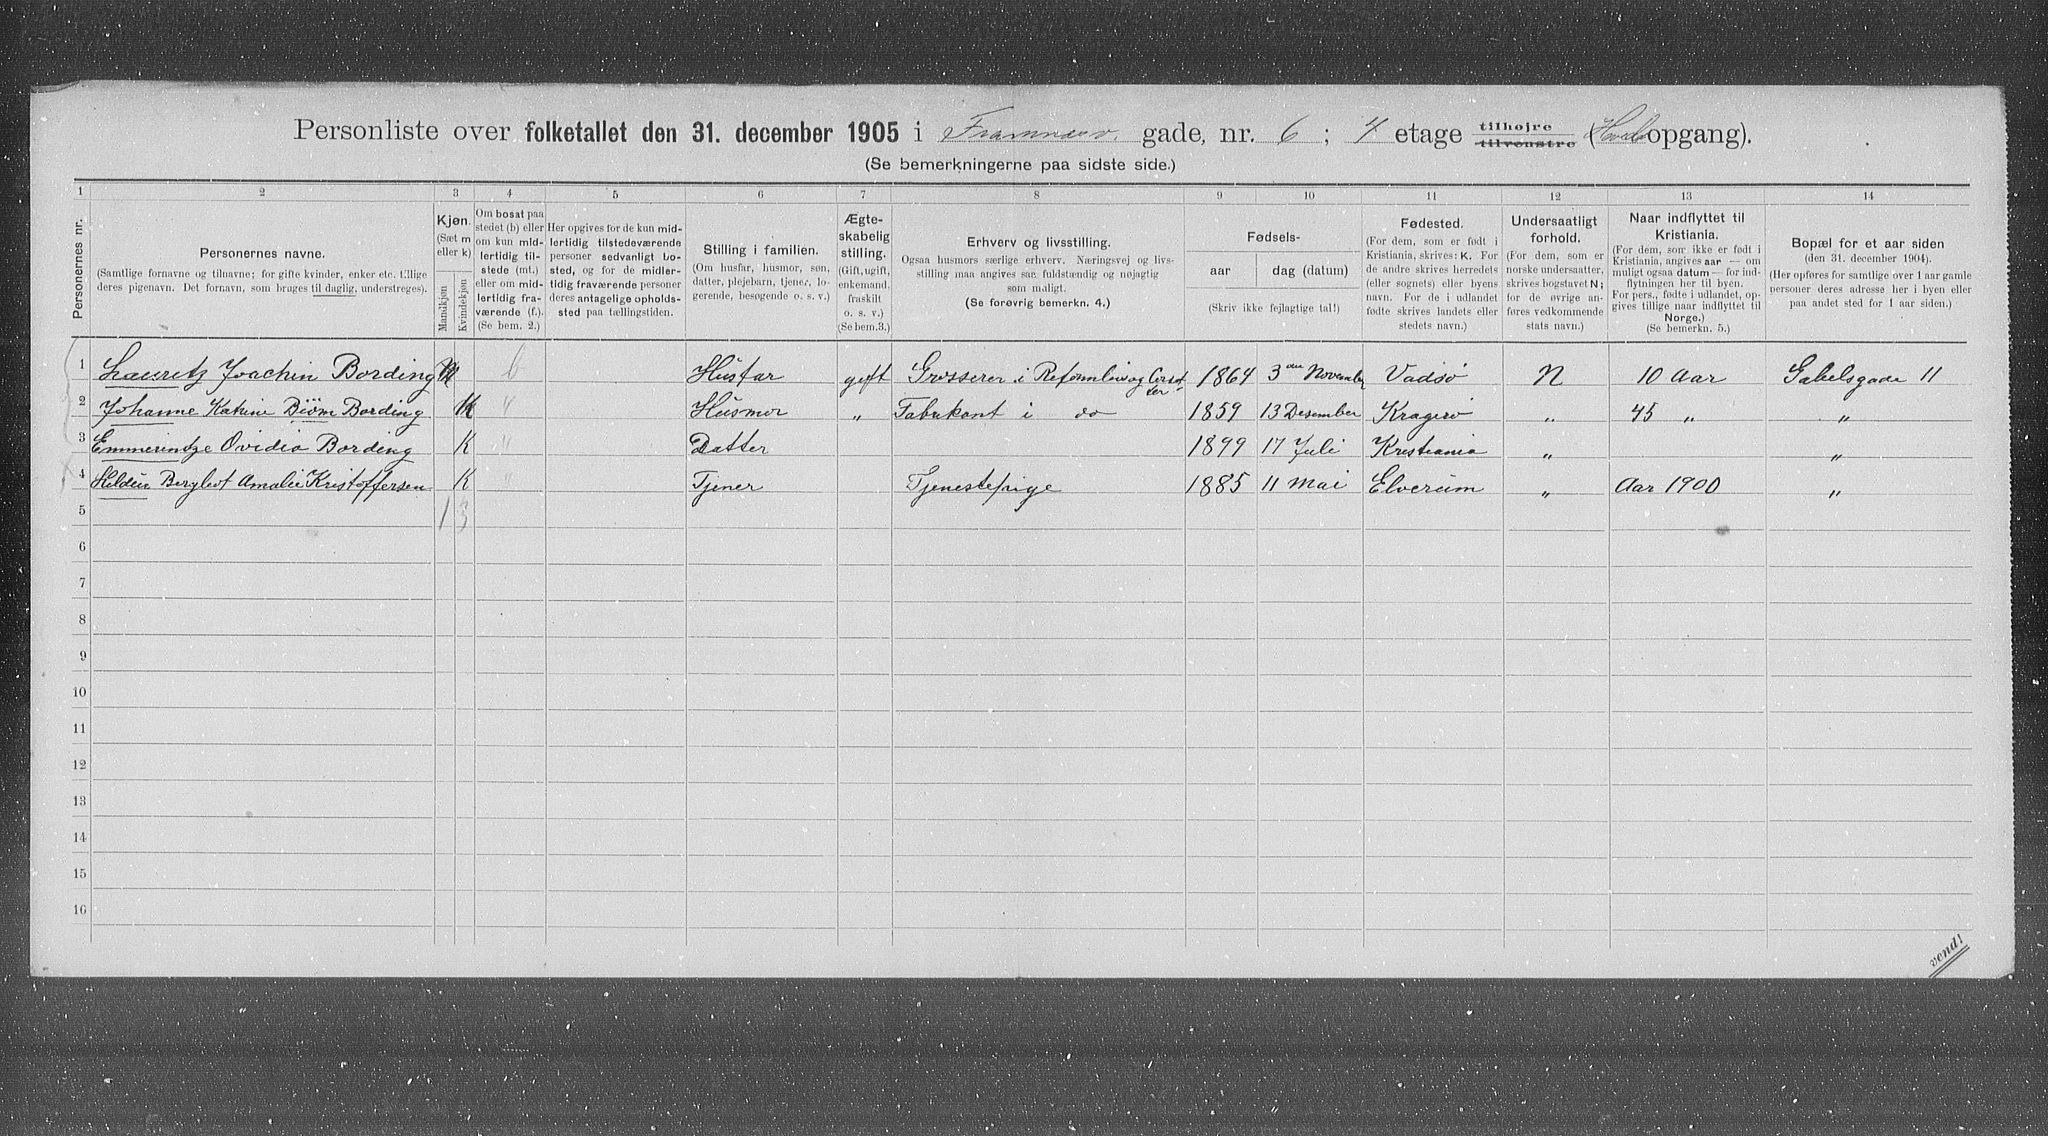 Personliste over folketallet den 31. december 1905 i Framnæsv. gade, nr. 6; 4 etage tilhøjre tilvenstre (Hoved opgang).
(Se bemerkningerne paa sidste side.)
1 2 3 4 5 6 7 8 9 10 11 12 13 14
Personernes nr.
Personernes navne.
(Samtlige fornavne og tilnavne; for gifte kvinder, enker etc. tillige
deres pigenavn. Det fornavn, som bruges til daglig, understreges).
Kjøn.
(Sæt m
eller k)
Mandkjøn
Kvindekjøn
Om bosat paa
stedet (b) eller
om kun mid-
lertidig til-
stede (mt.)
eller om mid-
lertidig fra-
værende (f.).
(Se bem. 2.)
Her opgives for de kun mid-
lertidig tilstedeværende
personer sedvanlig bo-
sted, og for de midler-
tidig fraværende personer
deres antagelige opholds-
sted paa tællingstiden.
Stilling i familien.
(Om husfar, husmor, søn,
datter, plejebarn, tjener, lo-
gerende, besøgende o. s. v.)
Ægte-
skabelig
stilling.
(Gift, ugift,
enkemand,
fraskilt
o. s. v.)
(Se bem. 3.)
Erhverv og livsstilling.
Ogsaa husmors særlige erhverv. Næringsvej og livs-
stilling maa angives saa fuldstændig og nøjagtig
som muligt.
(Se forøvrig bemerkn. 4.)
Fødsels-
aar dag (datum)
(Skriv ikke fejlagtige tal!)
Fødested.
(For dem, som er født i
Kristiania, skrives: K. For
de andre skrives herredets
(eller sognets) eller byens
navn. For de i udlandet
fødte skrives landets eller
stedets navn.)
Undersaatligt
forhold.
(For dem, som er
norske undersaatter,
skrives bogstavet N;
for de øvrige an-
føres vedkommende
stats navn.)
Naar indflyttet til
Kristiania.
(For dem, som ikke er født i
Kristiania, angives aar — om
muligt ogsaa datum — for ind-
flytningen her til byen.
For pers., fødte i udlandet, op-
gives tillige naar indflyttet til
Norge.)
(Se bemerkn. 5.)
Bopæl for et aar siden
(den 31. december 1904).
(Her opføres for samtlige over 1 aar gamle
personer deres adresse her i byen eller
paa andet sted for 1 aar siden.)
1 Lauretz Joachin Bording M b Husfar gift Grosserer i Reformliv og Corset- ter 1864 3 die November Vadsø N 10 Aar Gabelsgade 11
2 Johanne Katrine Biørn Bording K " Husmor " Fabrikant i do 1859 13 Desember Kragerø " 45 " "
3 Emmerentze Ovidia Bording K " Datter 1899 17 Juli Kristiania " "
4 Heldur Bergliot Amalie Kristoffersen K " Tjener Tjenestepige 1885 11 Mai Elverum " Aar 1900 "
5 1 3
6
7
8
9
10
11
12
13
14
15
16
vend!